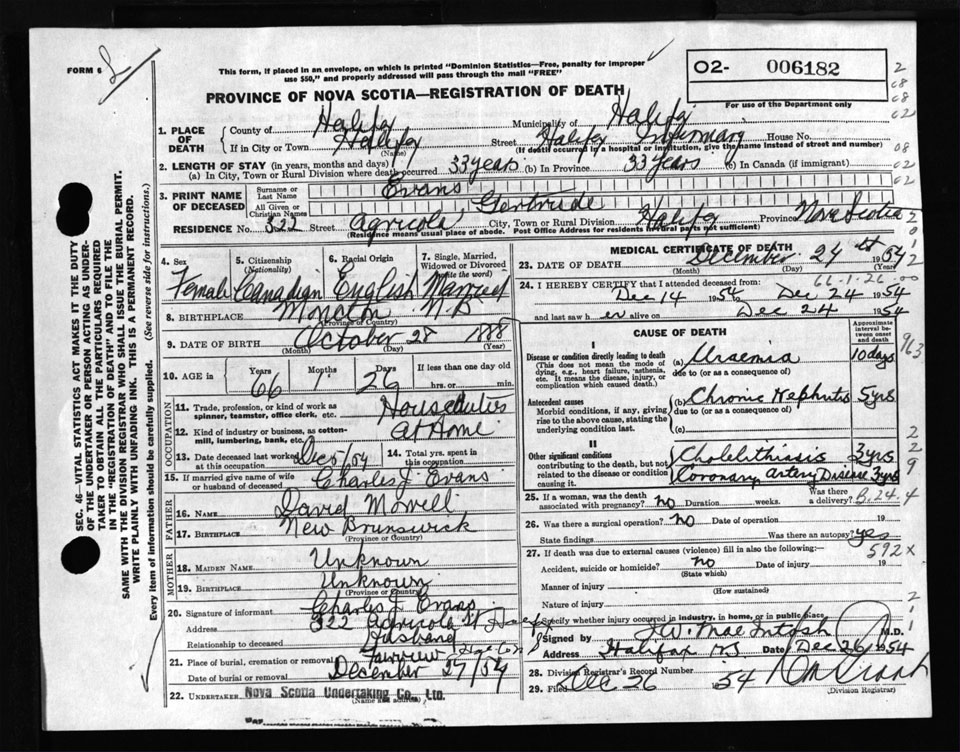 FORM 6
This form, if placed in an envelope, on which is printed "Dominion Statistics—Free, penalty for improper
use $50," and properly addressed will pass through the mail "FREE"
O2- 006182
For use of the Department only
PROVINCE OF NOVA SCOTIA—REGISTRATION OF DEATH
1. PLACE OF DEATH
County of Halifax Municipality of Halifax
If in City or Town Halifax Street Halifax Infirmary House No.
(Name) (If death occurred in a hospital or institution, give the name instead of street and number)
2. LENGTH OF STAY (in years, months and days)
(a) In City, Town or Rural Division where death occurred 33 years (b) In Province 33 years (c) In Canada (if immigrant)
3. PRINT NAME OF DECEASED
Surname or Last Name Evans
All Given or Christian Names Gertrude
RESIDENCE No. 322 Street Agricola City, Town or Rural Division Halifax Province Nova Scotia
(Residence means usual place of abode. Post Office Address for residents of rural parts not sufficient)
4. Sex Female
5. Citizenship (Nationality) Canadian
6. Racial Origin English
7. Single, Married, Widowed or Divorced (write the word) Married
8. BIRTHPLACE Moncton N B
(Province or Country)
9. DATE OF BIRTH October 28 1888
(Month) (Day) (Year)
10. AGE in Years 66 Months 1 Days 26 If less than one day hrs. or min.
OCCUPATION
11. Trade, profession, or kind of work as spinner, teamster, office clerk, etc. House duties
12. Kind of industry or business, as cotton-mill, lumbering, bank, etc. At Home
13. Date deceased last worked at this occupation Dec 5/54
14. Total yrs. spent in this occupation
15. If married give name of wife or husband of deceased Charles J. Evans
FATHER
16. Name David
17. BIRTHPLACE New Brunswick
(Province or Country)
MOTHER
18. MAIDEN NAME Unknown
19. BIRTHPLACE Unknown
(Province or Country)
20. Signature of informant Charles J. Evans
Address 322 Agricola St
Relationship to deceased Husband
21. Place of burial, cremation or removal Fairview
Date of burial or removal December 27/54
22. UNDERTAKER Nova Scotia Undertaking Co., Ltd.
(Name and address)
MEDICAL CERTIFICATE OF DEATH
23. DATE OF DEATH December 24 1954
(Month) (Day) (Year)
24. I HEREBY CERTIFY that I attended deceased from:
Dec 14 1954 to Dec 24 1954
and last saw her alive on Dec 24 1954
CAUSE OF DEATH
Approximate interval between onset and death
I
Disease or condition directly leading to death (a) Uraemia 10 days
(This does not mean the mode of dying, e.g., heart failure, asthenia, etc. It means the disease, injury, or complication which caused death.)
due to (or as a consequence of)
Antecedent causes (b) Chronic Nephritis 5 yrs
Morbid conditions, if any, giving rise to the above cause, stating the underlying condition last.
due to (or as a consequence of)
(c)
II
Other significant conditions Cholelithiasis 3 yrs
contributing to the death, but not related to the disease or condition causing it. Coronary Artery Disease 3 yrs
25. If a woman, was the death associated with pregnancy? no Duration weeks. Was there a delivery?
26. Was there a surgical operation? no Date of operation 19
State findings Was there an autopsy? yes
27. If death was due to external causes (violence) fill in also the following:—
Accident, suicide or homicide? no Date of injury 19
(State which)
Manner of injury
(How sustained)
Nature of injury
Specify whether injury occurred in industry, in home, or in public place
Signed by J.W. MacIntosh M.D.
Address Halifax NS Date Dec 26 1954
28. Division Registrar's Record Number
29. Filed Dec 26 1954
(Division Registrar)
SEC. 46—VITAL STATISTICS ACT MAKES IT THE DUTY
OF THE UNDERTAKER OR PERSON ACTING AS UNDER-
TAKER TO OBTAIN ALL THE PARTICULARS REQUIRED
IN THE "REGISTRATION OF DEATH" AND TO FILE THE
SAME WITH THE DIVISION REGISTRAR WHO SHALL ISSUE THE BURIAL PERMIT.
WRITE PLAINLY WITH UNFADING INK. THIS IS A PERMANENT RECORD.
Every item of information should be carefully supplied. (See reverse side for instructions.)